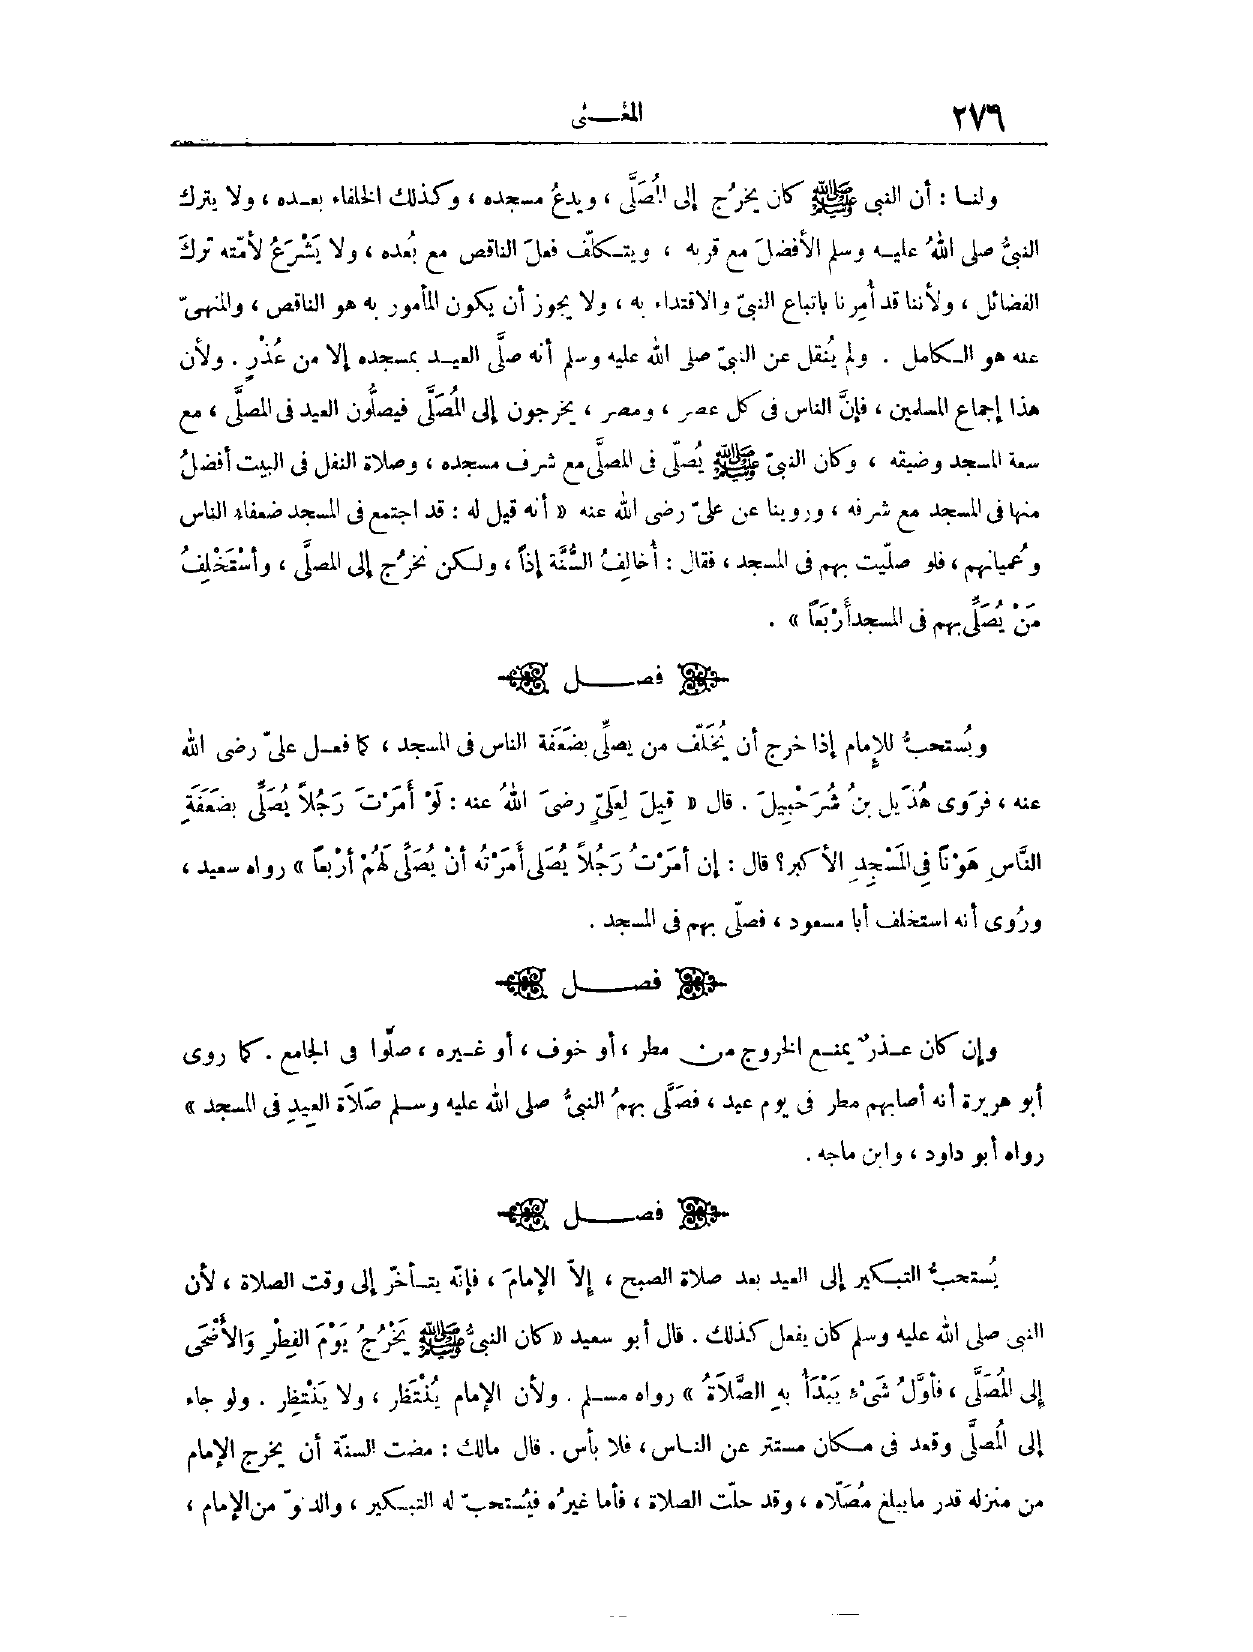 ٢٧٦ المغـــنى
ولنـا : أن النبى ﷺ كان يخرُج إلى المُصَلَّى ، ويدعُ مسجده ، وكذلك الخلفاء بعـده ، ولا يترك
النبىُّ صلى اللهُ عليـه وسلم الأفضلَ مع قربه ، ويتـكلّف فعلَ الناقص مع بُعده ، ولا يَشْرَعُ لأمّته تركَ
الفضائل ، ولأننا قد أُمِرنا باتباع النبىّ والاقتداء به ، ولا يجوز أن يكون المأمور به هو الناقص ، والمنهىّ
عنه هو الـكامل . ولم يُنقل عن النبىّ صلى الله عليه وسلم أنه صلَّى العيـد بمسجده إلا من عُذْرٍ . ولأن
هذا إجماع المسلمين ، فإنَّ الناس فى كل عصر ، ومصر ، يخرجون إلى المُصَلَّى فيصلُّون العيد فى المصلَّى ، مع
سعة المسجد وضيقه ، وكان النبىّ ﷺ يُصلّى فى المصلَّى مع شرف مسجده ، وصلاة النفل فى البيت أفضلُ
منها فى المسجد مع شرفه ، وروينا عن علىّ رضى الله عنه « أنه قيل له : قد اجتمع فى المسجد ضعفاء الناس
وعُميانهم ، فلو صلّيت بهم فى المسجد ، فقال : أُخالِفُ السُّنَّة إذاً ، ولـكن نخرُج إلى المصلَّى ، وأسْتَخْلِفُ
مَنْ يُصَلِّى بهم فى المسجد أَرْبَعَاً » .
فصـــل
ويُستحبُّ للإمام إذا خرج أن يُخَلّفَ من يصلِّى بضَعَفَة الناس فى المسجد ، كما فعـل علىّ رضى الله
عنه ، فرَوى هُذَيل بنُ شُرَحْبِيلَ . قال « قِيلَ لِعَلىٍّ رضىَ اللهُ عنه : لَوْ أَمَرْتَ رَجُلاً يُصَلِّى بضَعَفَةِ
النَّاسِ هَوْنَاً فِى المَسْجِدِ الأكبرِ؟ قال : إن أمَرْتُ رَجُلاً يُصَلى أمَرْتُه أنْ يُصَلِّىَ لَهُمْ أرْبعاً » رواه سعيد ،
ورُوى أنه استخلف أبا مسعود ، فصلّى بهم فى المسجد .
فصـــل
وإن كان عـذرٌ يمنـع الخروج مـن مطر ، أو خوف ، أو غـيره ، صلّوا فى الجامع . كما روى
أبو هريرة أنه أصابهم مطر فى يوم عيد ، فصَلَّى بهمُ النبىُّ صلى الله عليه وسـلم صَلاَةَ العِيدِ فى المسجد »
رواه أبو داود ، وابن ماجه .
فصـــل
يُستحبُّ التبـكير إلى العيد بعد صلاة الصبح ، إلاّ الإمامَ ، فإنّه يتـأخّر إلى وقت الصلاة ، لأن
النبى صلى الله عليه وسلم كان يفعل كذلك . قال أبو سعيد « كان النبىُّ ﷺ يَخْرُجُ يَوْمَ الفِطْرِ وَالأَضْحَى
إلى المُصَلَّى ، فأوَّلُ شَىْء يَبْدَأُ بهِ الصَّلاَةُ » رواه مسـلم . ولأن الإمام يُنْتَظَر ، ولا يَنْتَظِر . ولو جاء
إلى المُصلَّى وقعد فى مـكان مستتر عن النـاس ، فلا بأس . قال مالك : مضت السنّة أن يخرج الإمام
من منزله قدر مايبلغ مُصَلّاه ، وقد حلّت الصلاة ، فأما غيرُه فيُستحبّ له التبـكير ، والدنوّ من الإمام ،